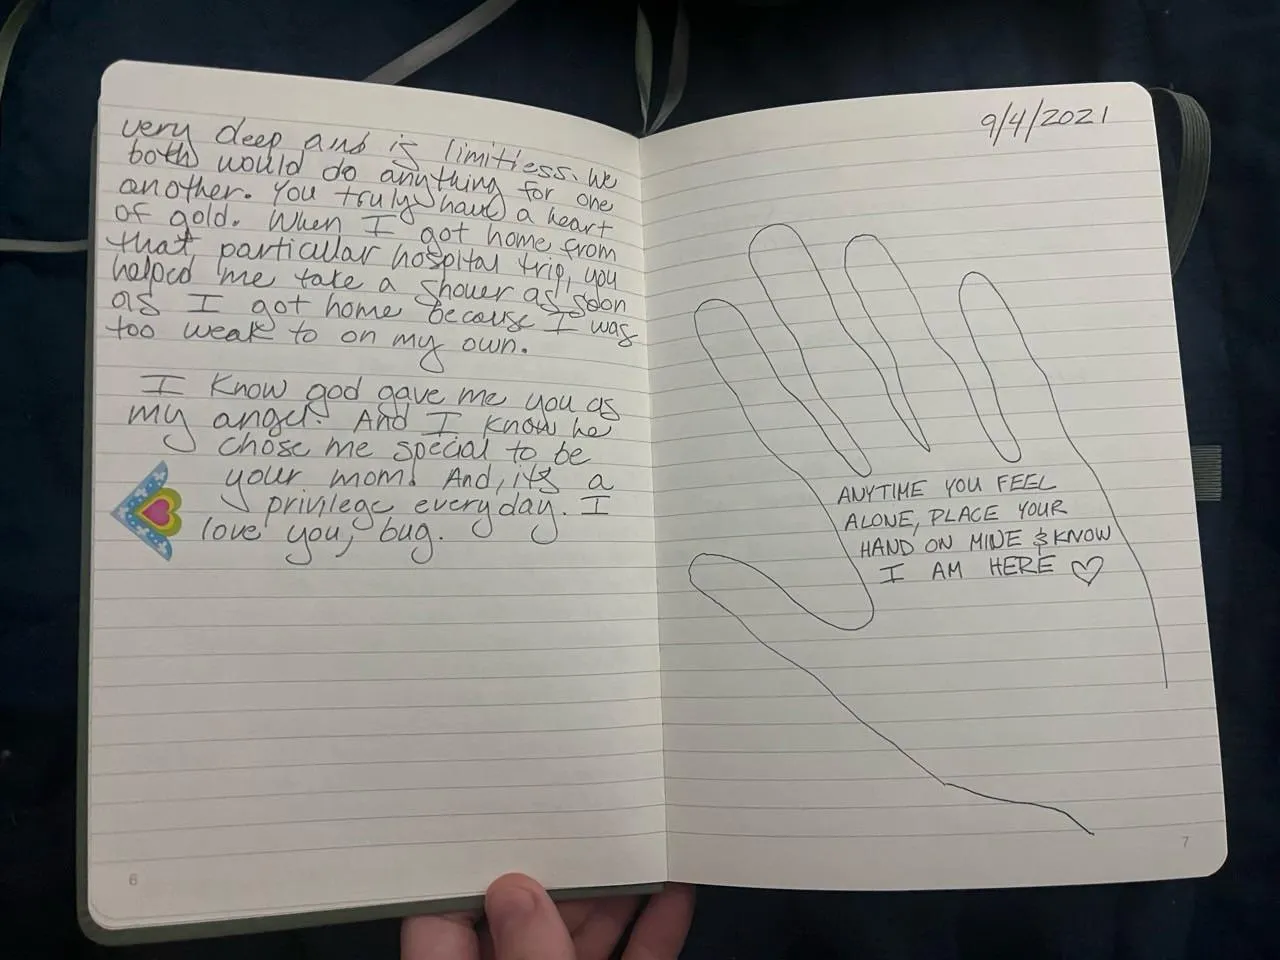 very deep and is limitless. We
both would do anything for one
another. You truly have a heart
of gold. When I got home from
that particular hospital trip, you
helped me take a shower as soon
as I got home because I was
too weak to on my own.
I know god gave me you as
my angel. And I know he
chose me special to be
your mom. And, its a
privilege everyday. I
love you, bug.
6
9/4/2021
ANYTIME YOU FEEL
ALONE, PLACE YOUR
HAND ON MINE & KNOW
I AM HERE ♡
7